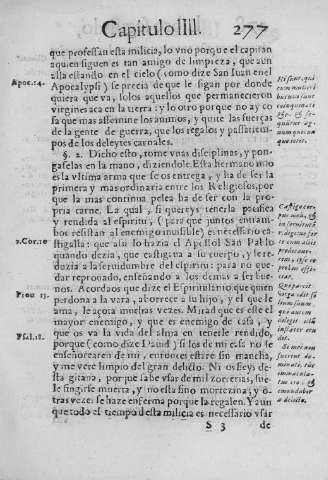 Capitulo IIII. 277
que professan esta milicia, lo vno porque el capitan
aquien siguen es tan amigo de limpieza, que aun
alla estando en el cielo (como dize San Iuan en el
Apoc. 14.
Apocalypsi) se precia de que le sigan por donde
quiera que va, solos aquellos que permanecieron
virgines aca en la tierra: y lo otro porque no ay co
sa que mas afemine los animos, y quite las fuerças
de la gente de guerra, que los regalos y passatiem-
pos de los deleytes carnales.
Hi sunt, qui
cum mulieri
bus non sunt
coinquinati
&c. & se-
quuntur ag-
num quocun
que ierit.
§. 2. Dicho esto, tome vnas disciplinas, y pon-
gaselas en la mano, diziendole. Esta hermano mio
es la vltima arma que se os entrega, y ha de ser la
primera y mas ordinaria entre los Religiosos, por
que la mas continua pelea ha de ser con la pro-
pria carne. La qual, si quereys tenerla pacifica
y rendida al espiritu, (para que juntos entram-
bos resistan al enemigo inuisible) es necessario ca-
2. Cor. 10
stigalla: que assi lo hazia el Apostol San Pablo
quando dezia, que castigaua a su cuerpo, y le re-
duzia a la seruidumbre del espiritu: para no que-
dar reprouado, enseñando a los demas a ser bue-
nos. Acordaos que dize el Espiritu santo que quien
Prou. 13.
perdona a la vara, aborrece a su hijo, y el que le
ama, le açota muchas vezes. Mirad que es este el
mayor enemigo, y que es enemigo de casa, y
que os va la vida del alma en tenerle rendido,
Psal. 18.
porque (como dize Dauid) si los de mi casa no se
enseñorearen de mi, entonces estare sin mancha,
y me vere limpio del gran delicto. Ni os feys de-
sta gitana, porque sabe vsar de mil zorrerias, sue-
le fingirse muerta, y no esta sino mortezina; y o-
tras vezes se haze enferma porque la regalen. Y aun
que todo el tiempo desta milicia es necessario vsar
Castigo cor-
pus meū, &
in seruitutē
redigo, ne for
te cum alijs
prædicaue-
rim, ipse re-
probus effi-
ciar.
Qui parcit
virgæ odit fi
lium suum:
qui autem
diligit illū
instanter eru
dit.
Si mei non
fuerint do-
minati, tūc
immacula-
tus ero, &
emundabor
a delicto.
S 3 de